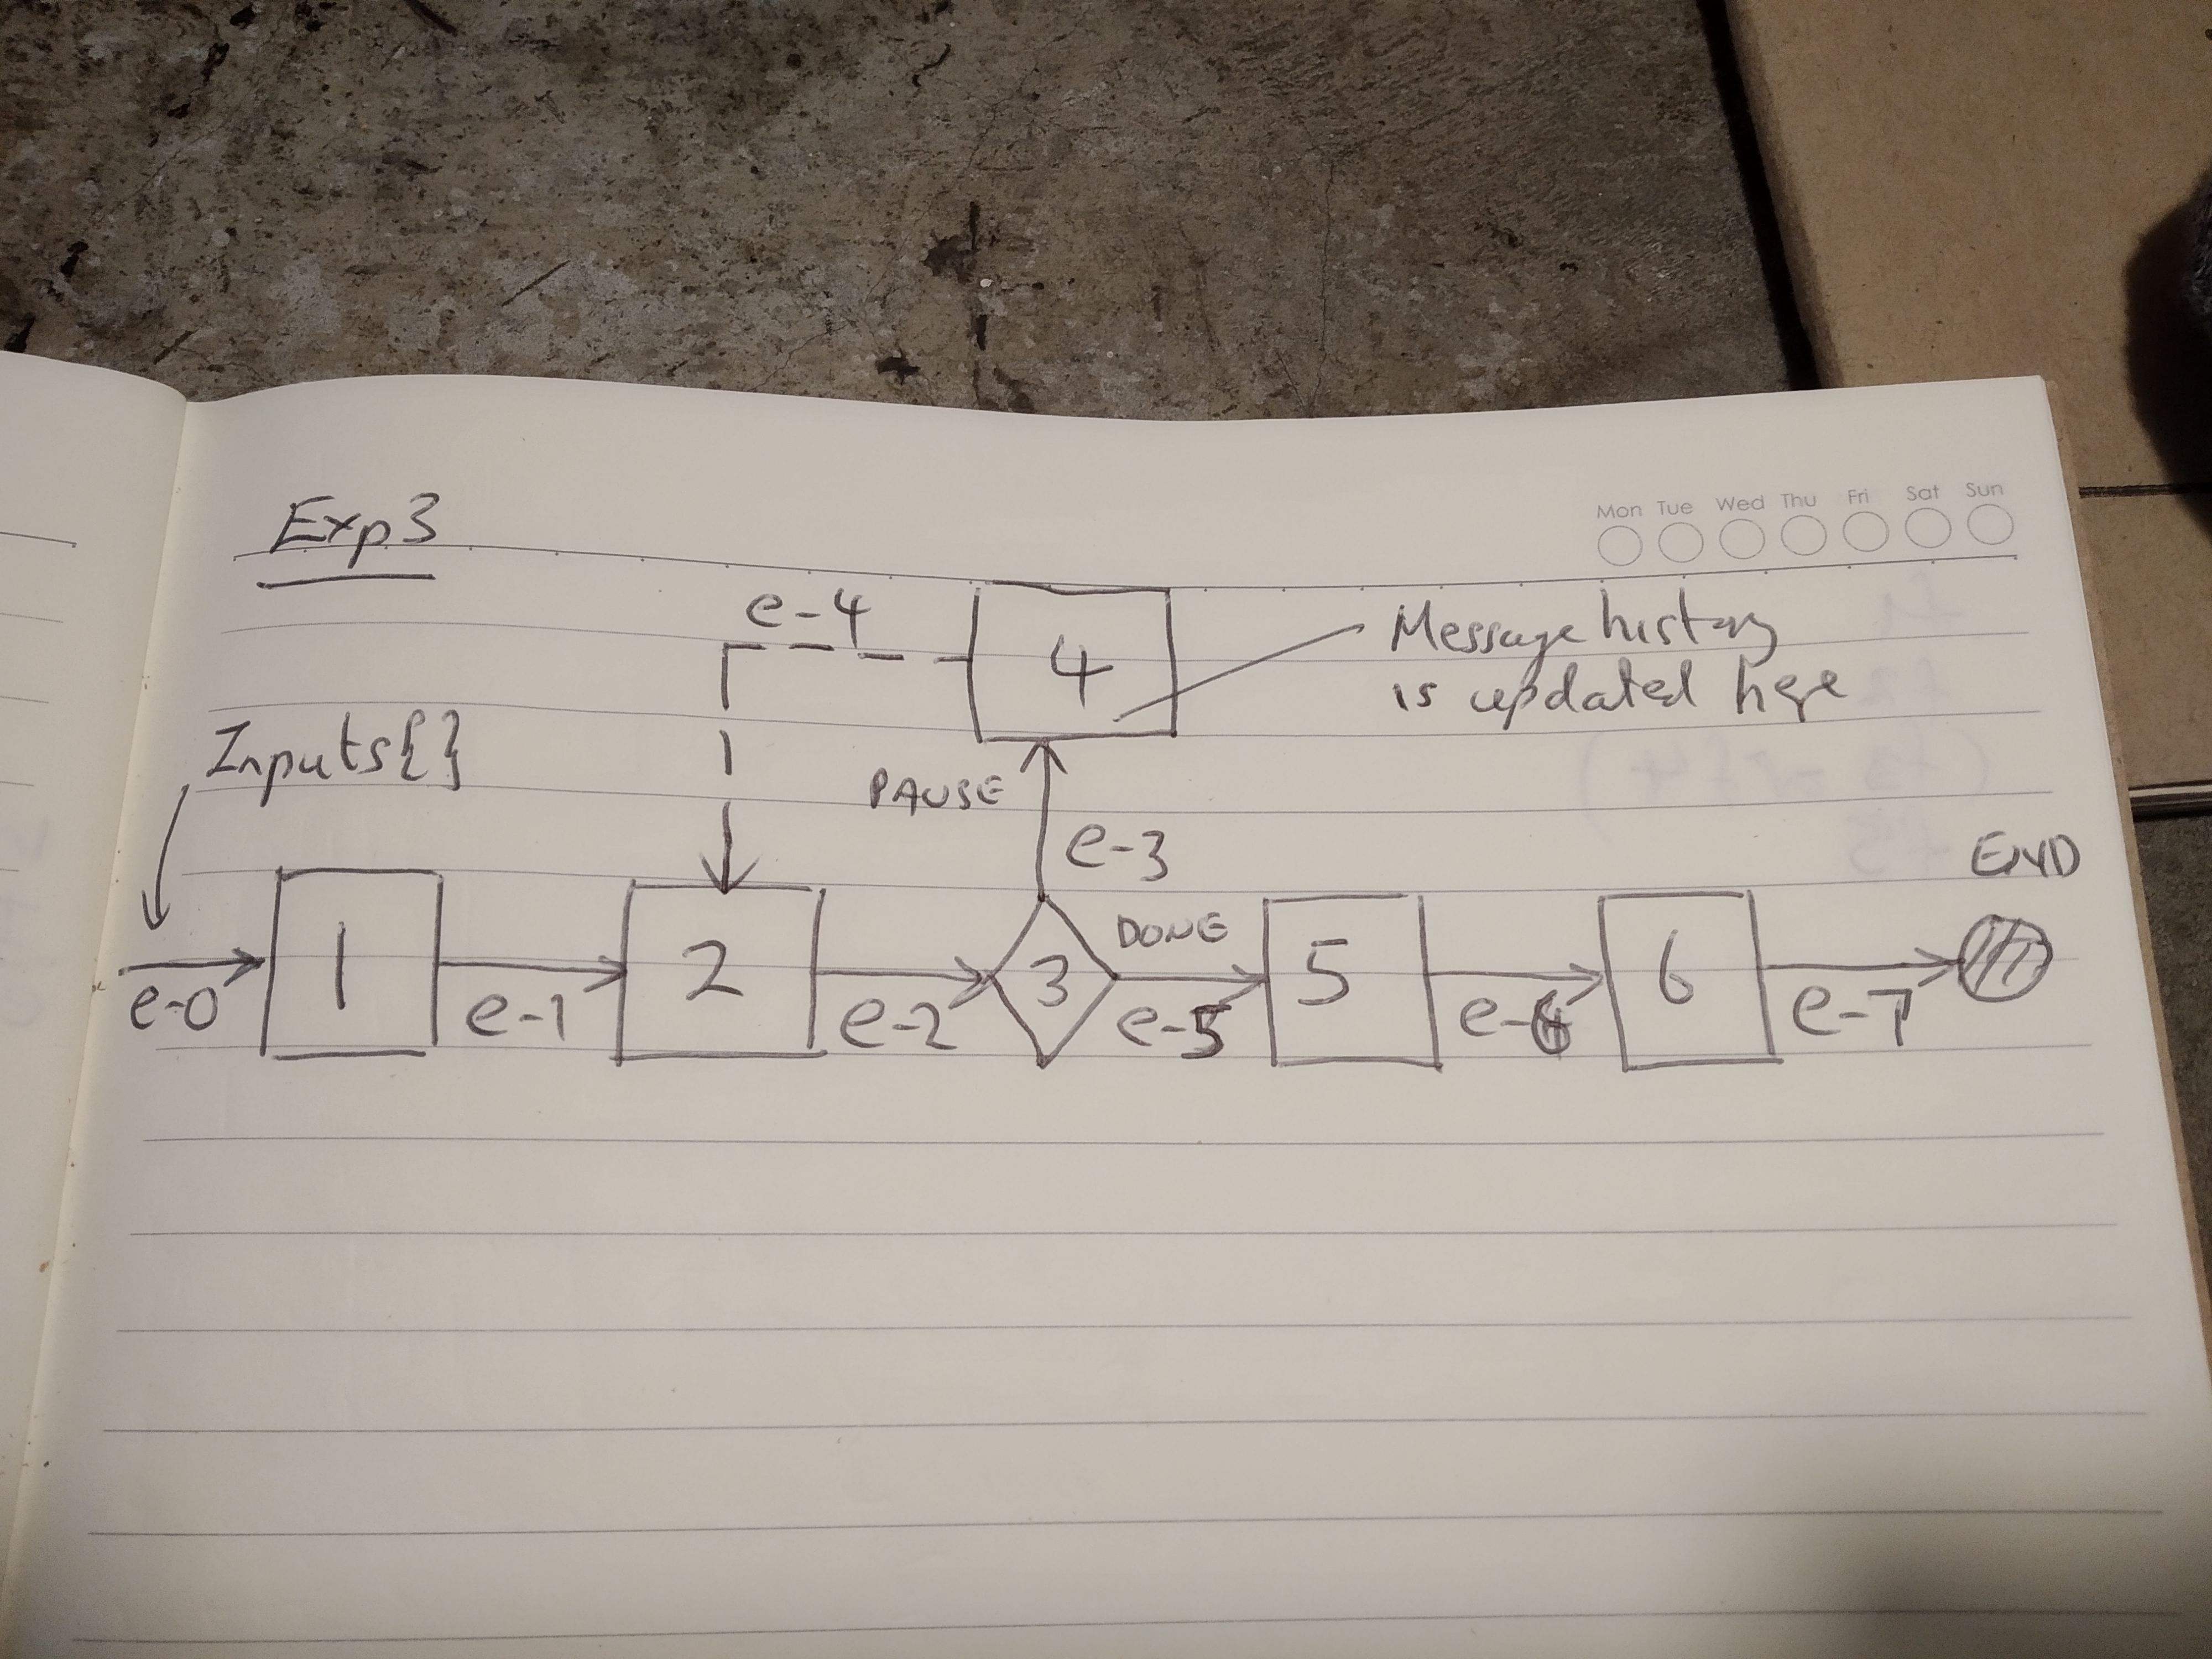 Exp3
Mon Tue Wed Thu Fri Sat Sun
e-4
4
Message history
is updated here
Inputs{}
PAUSE
e-3
END
DONE
1
2
3
5
6
e-0
e-1
e-2
e-5
e-6
e-7